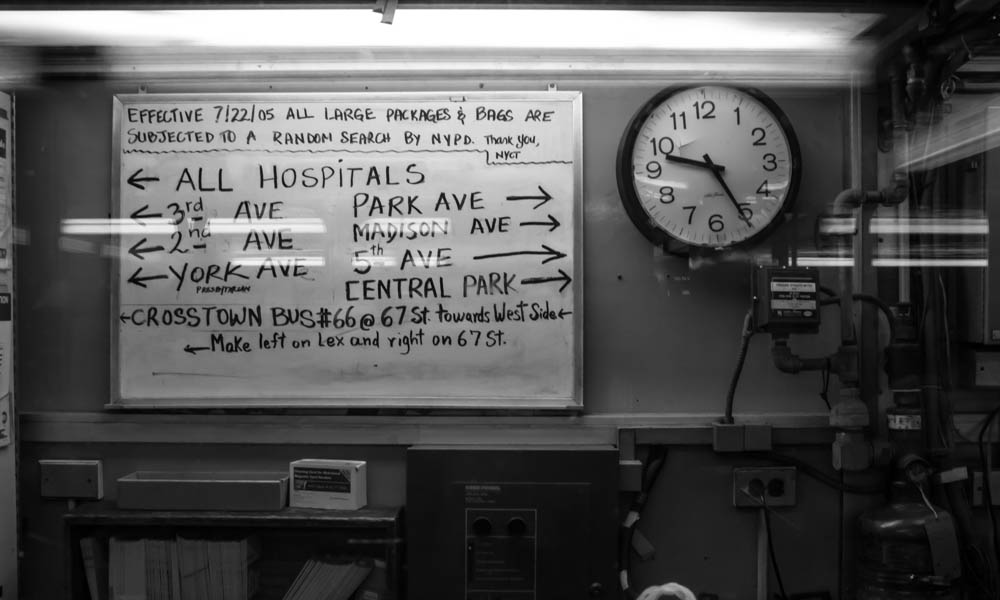 EFFECTIVE 7/22/05 ALL LARGE PACKAGES & BAGS ARE
SUBJECTED TO A RANDOM SEARCH BY NYPD. Thank you,
NYCT
← ALL HOSPITALS
← 3rd AVE
← 2nd AVE
← YORK AVE
PRESBYTERIAN
PARK AVE →
MADISON AVE →
5th AVE →
CENTRAL PARK →
← CROSSTOWN BUS #66 @ 67 St. towards West Side ←
← Make left on Lex and right on 67 St.
12
1
2
3
4
5
6
7
8
9
10
11